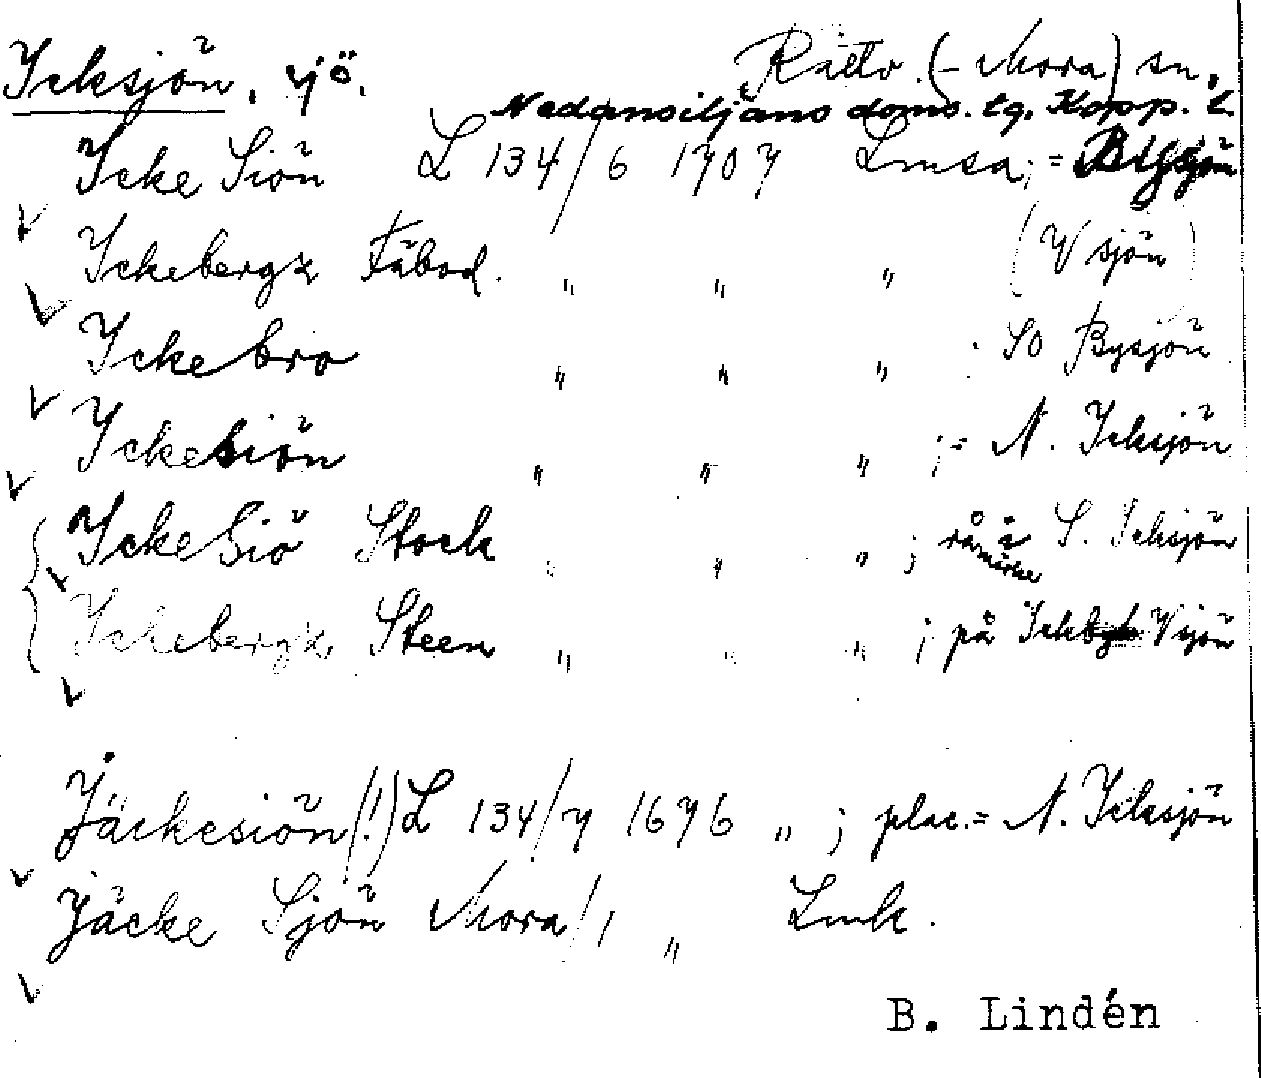 Icksjön, sjö. Rättv. (- Mora) sn,
Nedansiljans doms. tg. Kopp. l.
Icke Siön L 134/6 1707 Lmsa; = Bysjön
Ickebergz Fäbod. " " " (V sjön)
Ickebro " " " SO Bysjön
Ickesiön " " " ; = N. Icksjön
IckeSiö Stock " " ; råmärke i S. Icksjön
Ickebergz Steen " " " ; på V sjön
Jäckesiön (!) L 134/7 1676 " ; plac. = N. Icksjön
Jäcke Sjön Mora/1 " Lmk.
B. Lindén